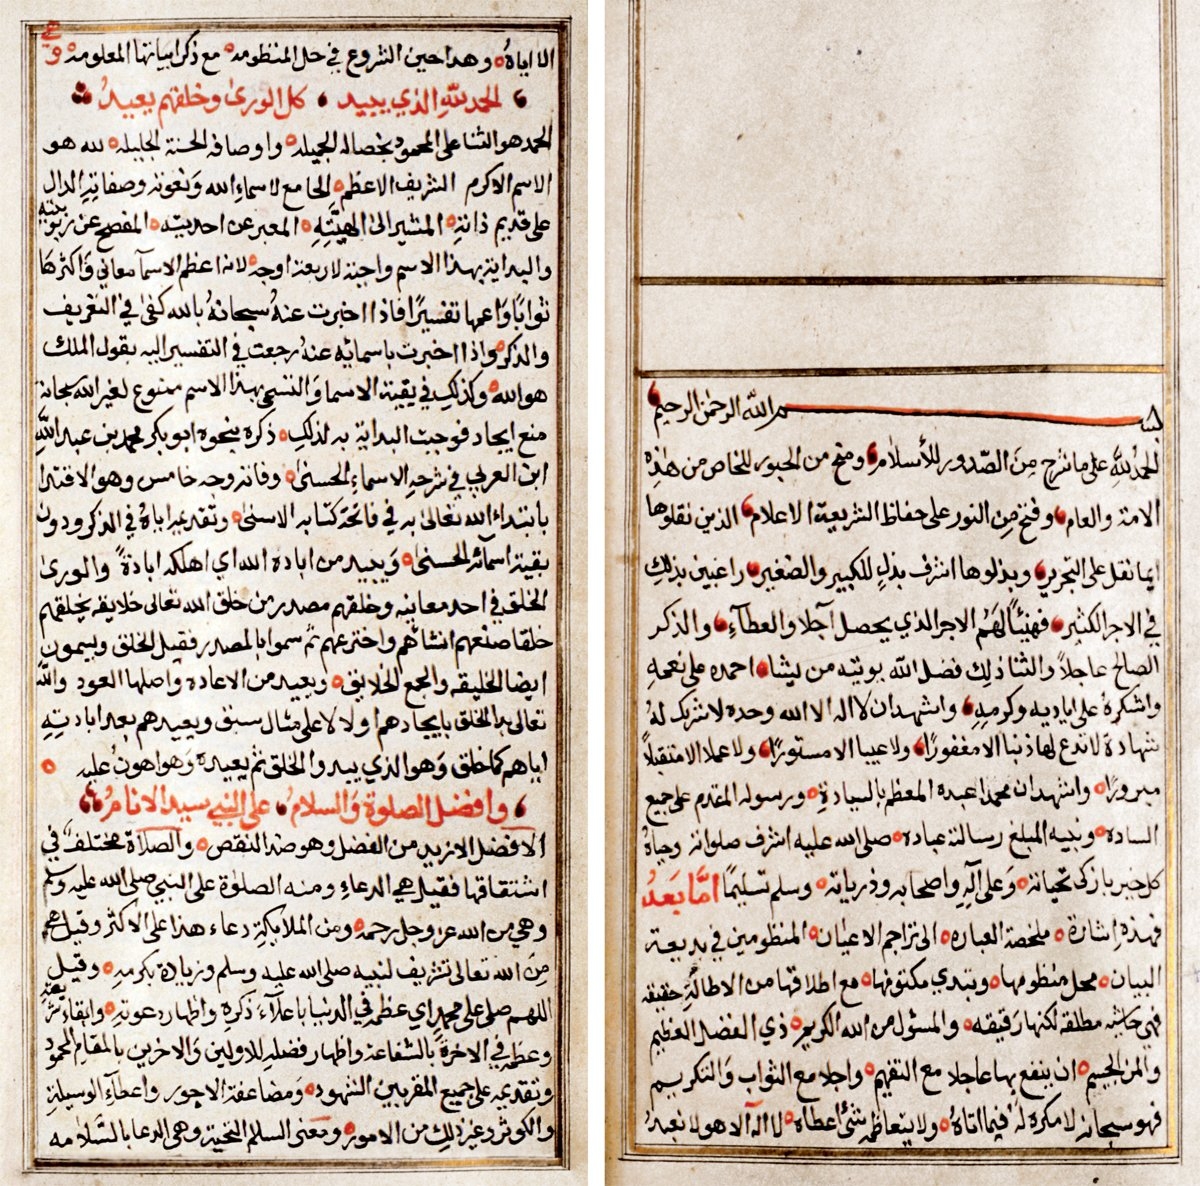 بسم الله الرحمن الرحيم
الحمد لله على ما شرح من الصدور للأسلام ومنح من الحبور للخاص من هذه
الامة والعام وفتح من النور على حفاظ الشريعة الاعلام الذين نقلوها
ايما نقل على التحرير وبذلوها اشرف بذل للكبير والصغير راغبين بذلك
في الاجر الكثير فهنيئاً لهم الاجر الذي يحصل آجلا والعطاء والذكر
الصالح عاجلاً والثنا ذلك فضل الله يوتيه من يشا احمده على نعمه
واشكره على اياديه وكرمه واشهد ان لا اله الا الله وحده لا شريك له
شهادة لا تدع لها ذنبا الا مغفورًا ولا عيبا الا مستورًا ولا عملا الا متقبلاً
مبرورًا واشهد ان محمدا عبده المعظم بالسيادة ورسوله المقدم على جميع
الساده ونبيه المبلغ رسالته عباده صلى الله عليه اشرف صلواته وحياه
كل خير بازكى تحياته وعلى آله واصحابه وذرياته وسلم تسليمًا امَّا بَعدُ
فهذه اشارة ملخصة العباره الى تراجم الاعيان المنظومين في بديعة
البيان محل منظومها وتبدي مكتومها مع اطلاقها من الاطالة حقيقه
فهي حاشيه مطلقه لكنها رقيقه والمسئول من الله الكريم ذي الفضل العظيم
والمن الجسيم ان ينفع بها عاجلا مع التفهم واجلا مع الثواب والتكريم
فهو سبحانه لا مكره له فيما اتاه ولا يتعاظمه شئ اعطاه لا اله الا هو لا نعبد
الا اياه وهذا حين الشروع في حل المنظومه مع ذكر ابياتها المعلومه
الحمد لله الذي يبيد كل الورى وخلقهم يعيد
الحمد هو الثنا على المحمود بخصاله الجميله واوصافه الحسنة الجليله لله هو
الاسم الاكرم الشريف الاعظم الجامع لاسماء الله ونعوته وصفاته الدال
على قديم ذاته المشير الى الهيته المعبر عن احديته المفصح عن ربوبيته
والبداية بهذا الاسم واجبة لاربعة اوجه لانه اعظم الاسما معاني واكثرها
ثوابًا واعمها تفسيرًا فاذا اخبرت عنه سبحانه بالله كفى في التعريف
والذكر واذا اخبرت باسمائه عنه رجعت في التفسير اليه بقول الملك
هو الله وكذلك في بقية الاسما والتسمي بهذا الاسم ممنوع لغير الله سبحانه
منع ايجاد فوجبت البداية به لذلك ذكره بنحوه ابو بكر محمد بن عبد الله
ابن العربي في شرحه الاسماء الحسنى وفاته وجه خامس وهو الاقتدا
بابتداء الله تعالى به في فاتحة كتابه الاسنى وتقديمه اياه في الذكر ودون
بقية اسمائه الحسنى ويبيد من اباده الله اي اهلكه ابادة والورى
الخلق في احد معانيه وخلقهم مصدر من خلق الله تعالى خلايقه يخلقهم
خلقا صنعهم انشاهم واخترعهم ثم سموا بالمصدر فقيل الخلق ويسمون
ايضا الخليقه والجمع الخلايق ويعيد من الاعاده واصلها العود والله
تعالى بدا الخلق بايجادهم اولا لا على مثال سبق ويعيدهم بعد ابادته
اياهم كما خلق وهو الذي يبدو الخلق ثم يعيده وهو اهون عليه
وافضل الصلوة والسلام على النبي سيد الانام
الافضل الازيد من الفضل وهو ضد النقص والصلاة مختلف في
اشتقاقها فقيل هي الدعاء ومنه الصلوة على النبي صلى الله عليه وسلم
وهي من الله عز وجل رحمه ومن الملايكة دعاء هذا على الاكثر وقيل هي
من الله تعالى تشريف لنبيه صلى الله عليه وسلم وزيادة تكرمه وقيل
اللهم صلي على محمد اي عظمه في الدنيا باعلاء ذكره واظهار دعوته وابقاء شريعته
وعظمه في الاخرة بالشفاعة واظهار فضله للاولين والاخرين بالمقام المحمود
وتقديمه على جميع المقربين الشهود ومضاعفة الاجور واعطاء الوسيلة
والكوثر وغير ذلك من الامور ومعنى السلم التحية وهي الدعا بالسلامه